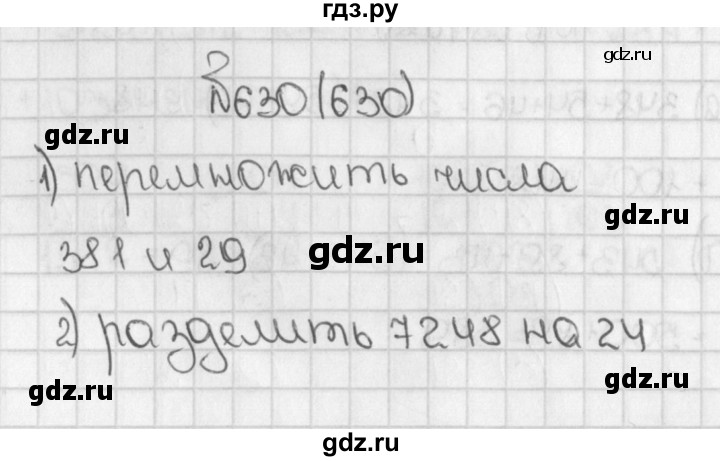 гдз.ру
gdz.ru
№630 (630)
gdz.ru
1) перемножить числа
gdz.ru
381 и 29
gdz.ru
2) разделить 7248 на 24
gdz.ru
gdz.ru
gdz.ru